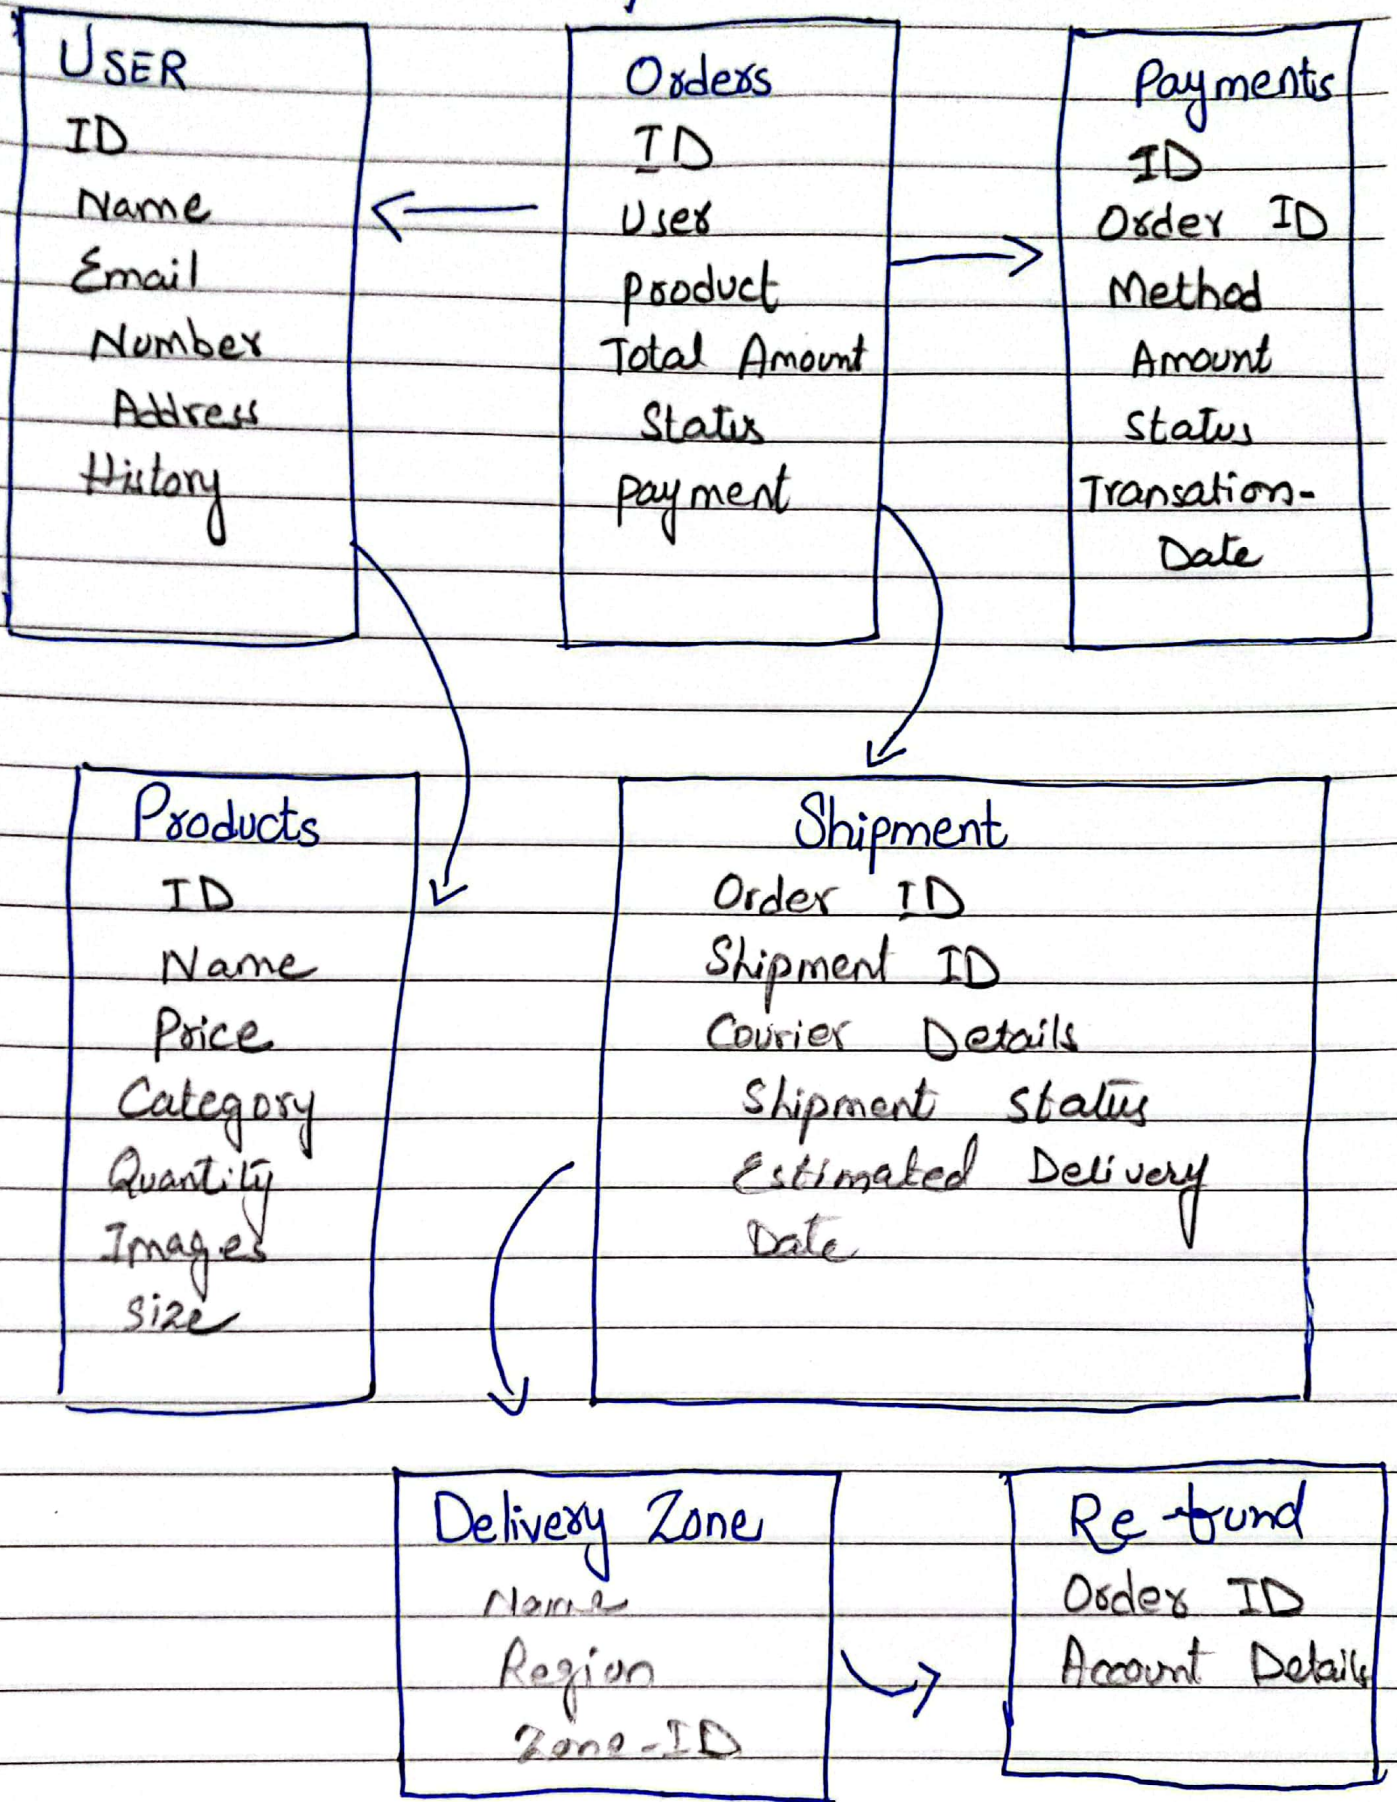 USER
ID
Name
Email
Number
Address
History
Orders
ID
User
Product
Total Amount
Status
Payment
Payments
ID
Order ID
Method
Amount
Status
Transation-
Date
Products
ID
Name
Price
Category
Quantity
Images
Size
Shipment
Order ID
Shipment ID
Courier Details
Shipment Status
Estimated Delivery
Date
Delivery Zone
Name
Region
Zone-ID
Re-fund
Order ID
Account Details